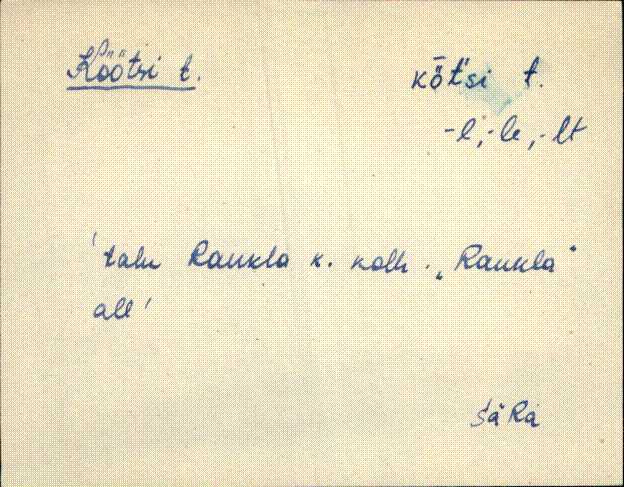 Köötsi t. kȫt'si t.
-l, -le, -lt
'talu Raukla k. kolh. „Raukla"
all'
JäRa